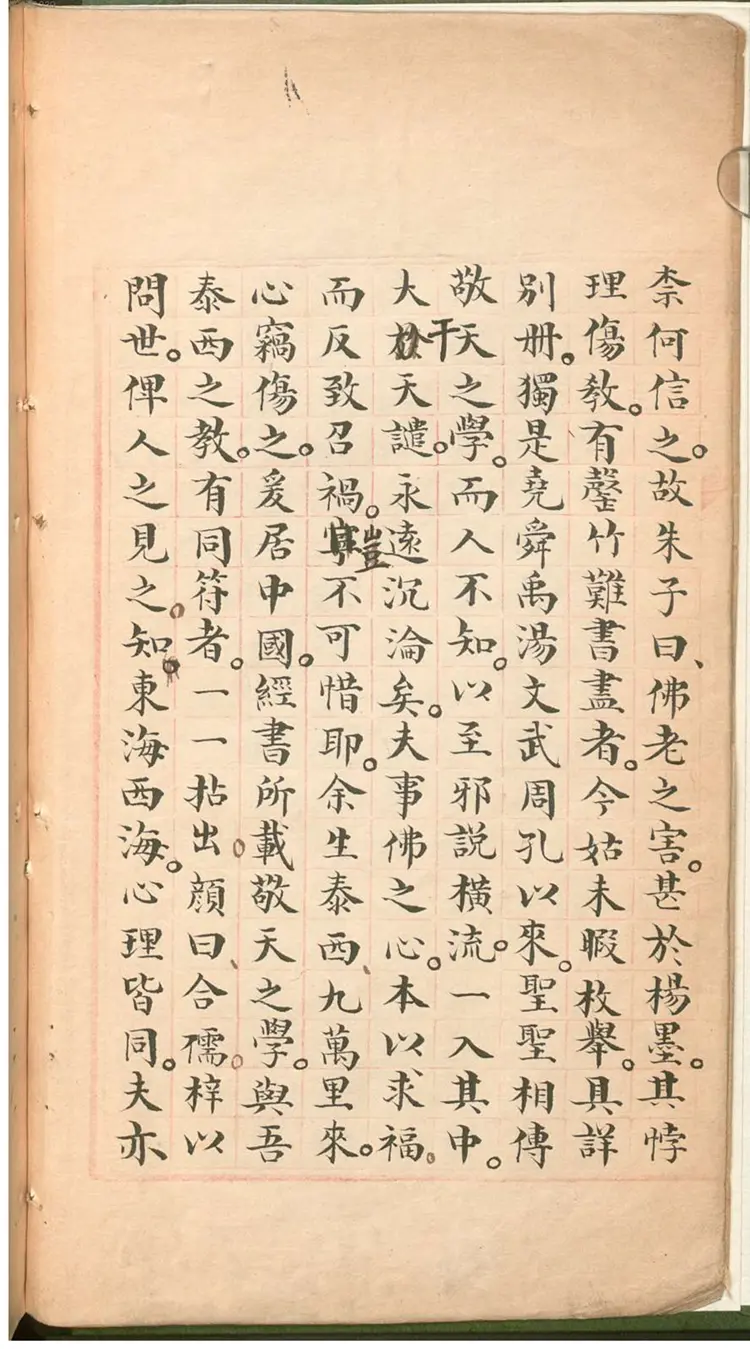 柰何信之。故朱子曰、佛老之害。甚於楊墨。其悖
理傷教。有罄竹難書盡者。今姑未暇枚舉。具詳
別册。獨是堯舜禹湯文武周孔以來。聖聖相傳
敬天之學。而人不知。以至邪説橫流。一入其中。
大干天譴。永遠沉淪矣。夫事佛之心。本以求福。
而反致召禍。豈不可惜耶。余生泰西、九萬里來。
心竊傷之。爰居中國。經書所載敬天之學。與吾
泰西之教。有同符者。一一拈出。顔曰、合儒。梓以
問世。俾人之見之。知。東海西海。心理皆同。夫亦